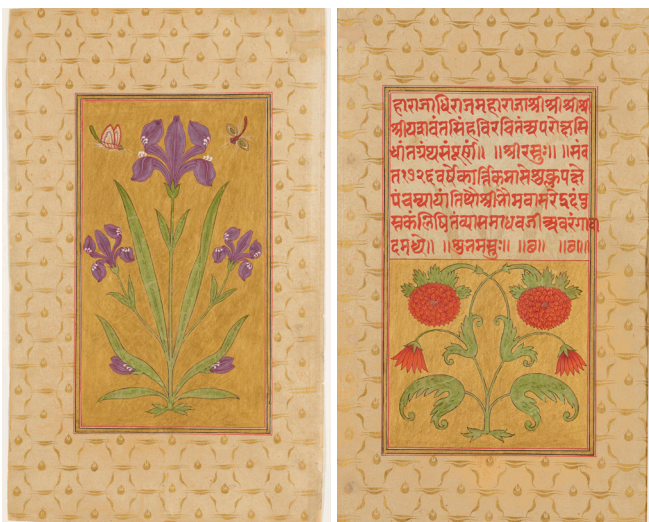 हाराजाधिराजमहाराजाश्रीश्रीश्रीश्री
श्रीयशवंतसिंहविरचितंअपरोक्षसि
धांतग्रंथसंपूर्णं॥ ॥श्रीरस्तुः॥ ॥संव
त१७२६वर्षेकार्त्तिकमासेशुक्लपक्षे
पंचम्यायांतिथौश्रीभौमवासरेइदंपु
स्तकंलिषितंव्यासमाधवजीअवरंगावा
दमध्ये॥ ॥शुभमस्तुः॥ ॥छ॥ ॥छ॥